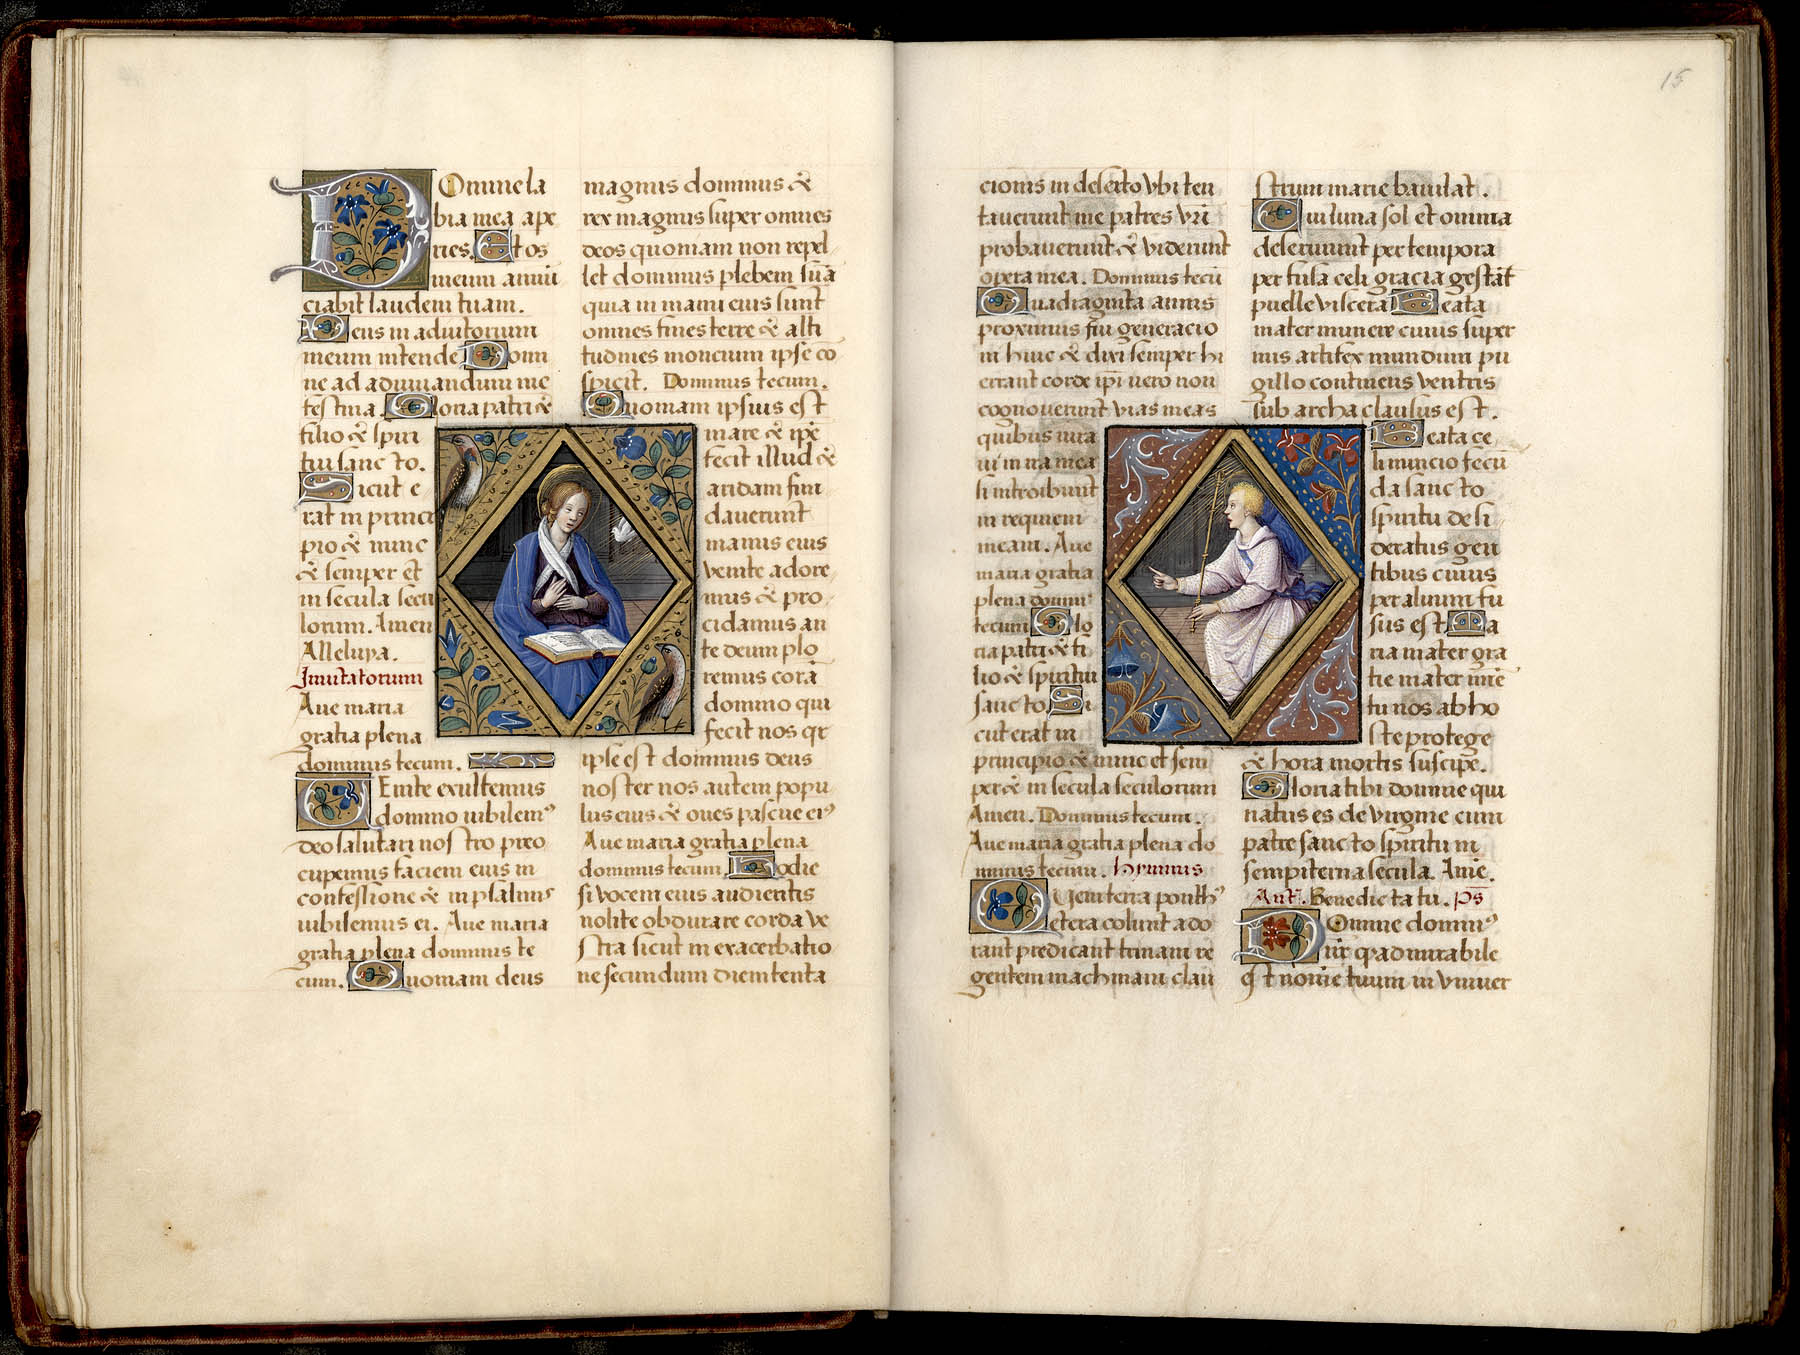 Domine la
bia mea ape
ries. Et os
meum annũ
ciabit laudem tuam.
Deus in adiutorium
meum intende Domi
ne ad adiuuandum me
festina. Gloria patri &
filio & spiri
tui sancto.
Sicut e
rat in princi
pio & nunc
& semper et
in secula secu
lorum. Amen
Alleluya.
Inuitatorium
Aue maria
gratia plena
dominus tecum.
Venite exultemus
domino iubilemꝰ
deo salutari nostro preo
cupemus faciem eius in
confessione & in psalmis
iubilemus ei. Aue maria
gratia plena dominus te
cum. Quoniam deus
magnus dominus &
rex magnus super omnes
deos quoniam non repel
let dominus plebem suã
quia in manu eius sunt
omnes fines terre & alti
tudines moncium ipse cõ
spicit. Dominus tecum.
Quoniam ipsius est
mare & ipẽ
fecit illud &
aridam fun
dauerunt
manus eius
venite adore
mus & pro
cidamus an
te deum plo
remus corã
domino qui
fecit nos qr
ipse est dominus deus
noster nos autem popu
lus eius & oues pascue eiꝰ
Aue maria gratia plena
dominus tecum. Hodie
si vocem eius audieritis
nolite obdurare corda ve
stra sicut in exacerbatio
ne secundum diem tenta
15
cionis in deserto vbi ten
tauerunt me patres vr̃i
probauerunt & viderunt
opera mea. Dominus tecũ
Quadraginta annis
proximus fui generacio
ni huic & dixi semper hi
errant corde ipĩ vero non
cognouerunt vias meas
quibus iura
ui in ira mea
si introibunt
in requiem
meam. Aue
maria gratia
plena domiꝰ
tecum Glo
ria patri & fi
lio & spiritui
sancto Si
cut erat in
principio & nunc et sem
per & in secula seculorum
Amen. Dominus tecum.
Aue maria gratia plena do
minus tecum. hymnus
Quem terra ponthꝰ
etera colunt ado
rant predicant trinam re
gentem machinam clau
strum marie baiulat.
Qui luna sol et omnia
deseruiunt per tempora
perfusa celi gracia gestãt
puelle viscera Beata
mater munere cuius super
nus artifex mundum pu
gillo continens ventris
sub archa clausus est.
Beata ce
li nuncio fecũ
da sancto
spiritu desi
deratus gen
tibus cuius
per aluum fu
sus est Ma
ria mater gra
tie mater mĩe
tu nos ab ho
ste protege
& hora mortis suscipe.
Gloria tibi domine qui
natus es de virgine cum
patre sancto spiritu in
sempiterna secula. Amẽ.
Anť. Benedicta tu. ps̃
Domine dominꝰ
nr̃ q̃ admirabile
est nomẽ tuum in vniuer